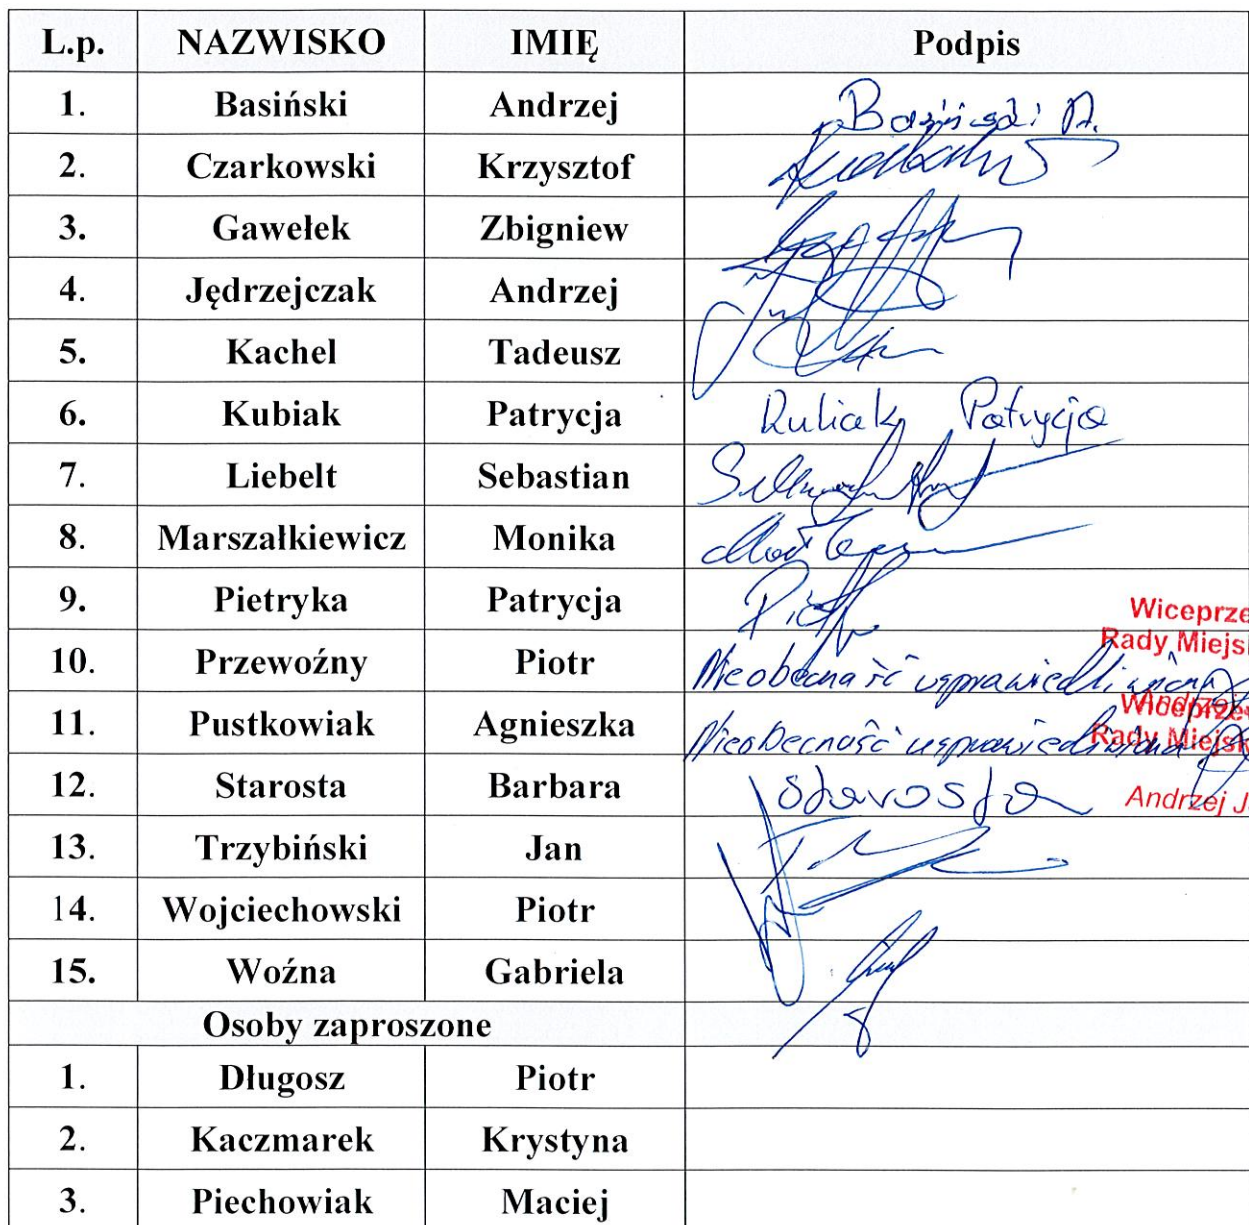 L.p. NAZWISKO IMIĘ Podpis
1. Basiński Andrzej Basiński A.
2. Czarkowski Krzysztof
3. Gawełek Zbigniew
4. Jędrzejczak Andrzej
5. Kachel Tadeusz
6. Kubiak Patrycja Kubiak Patrycja
7. Liebelt Sebastian
8. Marszałkiewicz Monika
9. Pietryka Patrycja
Wiceprze
Rady Miejs
10. Przewoźny Piotr Nieobecność usprawiedliwiona
Wiceprze
11. Pustkowiak Agnieszka Nieobecność usprawiedliwiona
Rady Miejs
12. Starosta Barbara Starosta
Andrzej J
13. Trzybiński Jan
14. Wojciechowski Piotr
15. Woźna Gabriela
Osoby zaproszone
1. Długosz Piotr
2. Kaczmarek Krystyna
3. Piechowiak Maciej